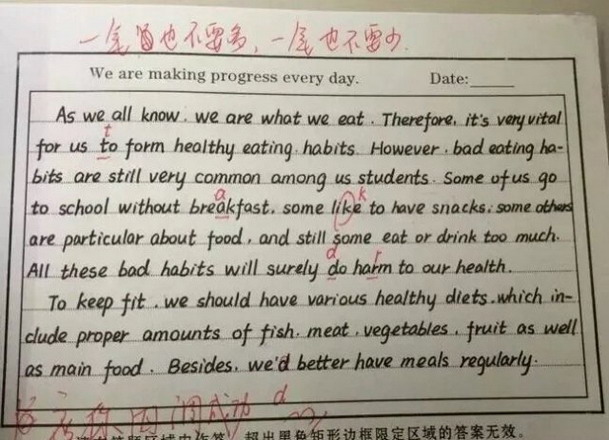 一笔画也不要多，一笔也不要少.
We are making progress every day. Date:
As we all know, we are what we eat. Therefore, it's very vital
t
for us to form healthy eating habits. However, bad eating ha-
bits are still very common among us students. Some of us go
a k
to school without breakfast, some like to have snacks, some others
are particular about food, and still some eat or drink too much.
d r
All these bad habits will surely do harm to our health.
To keep fit, we should have various healthy diets, which in-
clude proper amounts of fish, meat, vegetables, fruit as well
as main food. Besides, we'd better have meals regularly.
d
超出黑色矩形边框限定区域的答案无效。